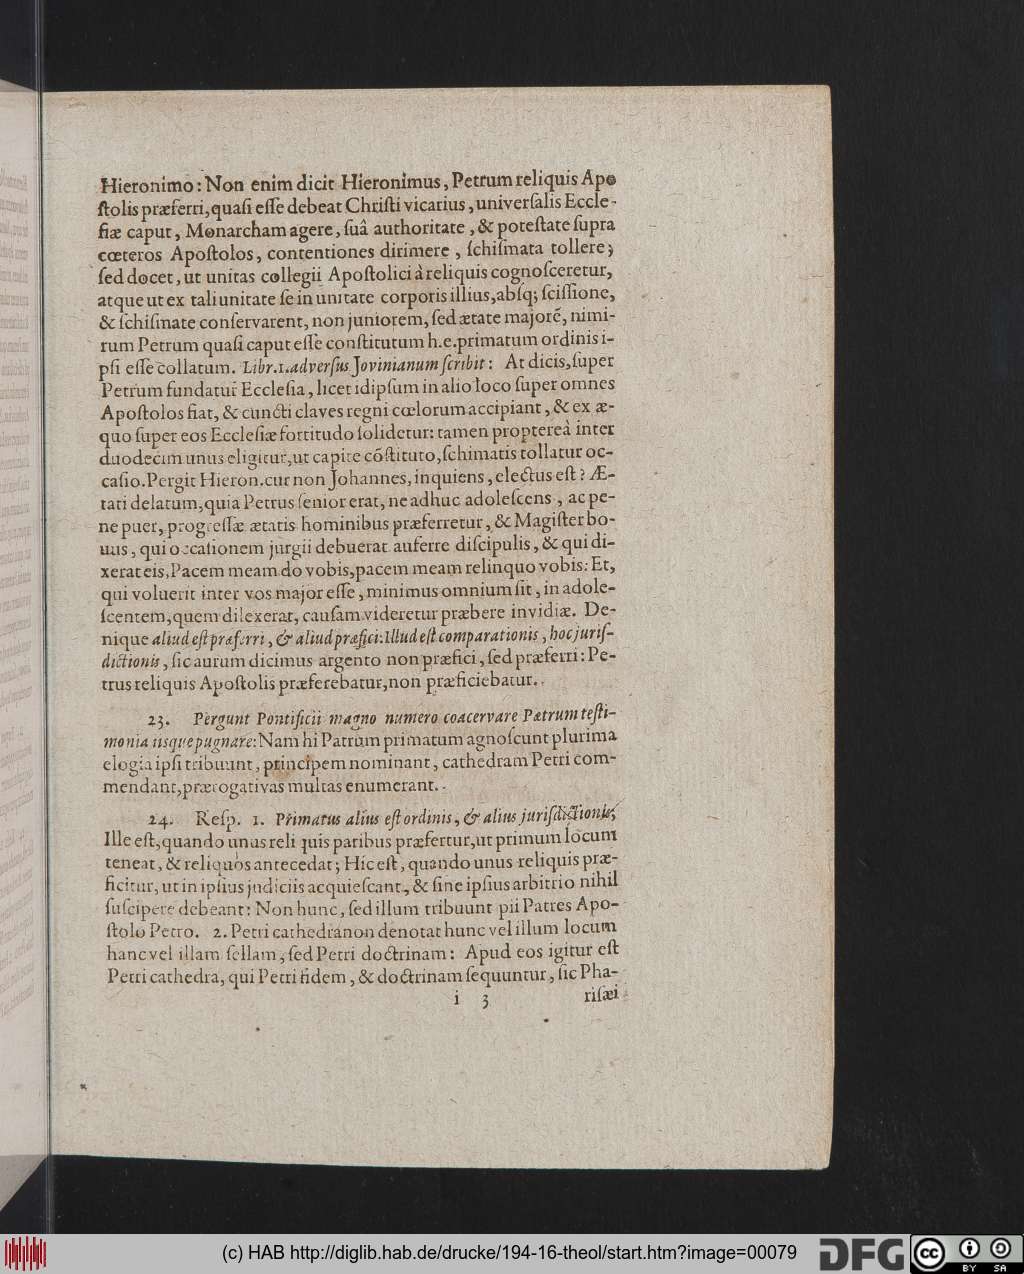 Hieronimo: Non enim dicit Hieronimus, Petrum reliquis Apo
ſtolis præferri, quaſi eſſe debeat Chriſti vicarius, univerſalis Eccle-
ſiæ caput, Monarcham agere, ſuâ authoritate, & poteſtate ſupra
cœteros Apoſtolos, contentiones dirimere, ſchiſmata tollere;
ſed docet, ut unitas collegii Apoſtolici à reliquis cognoſceretur,
atque ut ex tali unitate ſe in unitate corporis illius, abſq; ſciſſione,
& ſchiſmate conſervarent, non juniorem, ſed ætate majorē, nimi-
rum Petrum quaſi caput eſſe conſtitutum h.e. primatum ordinis i-
pſi eſſe collatum. Libr.1. adverſus Jovinianum ſcribit: At dicis, ſuper
Petrum fundatur Eccleſia, licet idipſum in alio loco ſuper omnes
Apoſtolos fiat, & cuncti claves regni cœlorum accipiant, & ex æ-
quo ſuper eos Eccleſiæ fortitudo ſolidetur: tamen proptereà inter
duodecim unus eligitur, ut capite cōſtituto, ſchimatis tollatur oc-
caſio. Pergit Hieron. cur non Johannes, inquiens, electus eſt? Æ-
tati delatum, quia Petrus ſenior erat, ne adhuc adoleſcens, ac pe-
ne puer, progreſſæ ætatis hominibus præferretur, & Magiſter bo-
nus, qui occationem jurgii debuerat auferre diſcipulis, & qui di-
xerat eis, Pacem meam do vobis, pacem meam relinquo vobis: Et,
qui voluerit inter vos major eſſe, minimus omnium ſit, in adole-
ſcentem, quem dilexerat, cauſam videretur præbere invidiæ. De-
nique aliud eſt præferri, & aliud præfici: Illud eſt comparationis, hoc juriſ-
dictionis, ſic aurum dicimus argento non præfici, ſed præferri: Pe-
trus reliquis Apoſtolis præferebatur, non præficiebatur.
23. Pergunt Pontificii magno numero coacervare Patrum teſti-
monia iisque pugnare: Nam hi Patrum primatum agnoſcunt plurima
elogia ipſi tribuunt, principem nominant, cathedram Petri com-
mendant, prærogativas multas enumerant.
24. Reſp. 1. Primatus alius eſt ordinis, & alius juriſdictionis;
Ille eſt, quando unus reliquis paribus præfertur, ut primum locum
teneat, & reliquos antecedat; Hic eſt, quando unus reliquis præ-
ficitur, ut in ipſius judiciis acquieſcant, & ſine ipſius arbitrio nihil
ſuſcipere debeant: Non hunc, ſed illum tribuunt pii Patres Apo-
ſtolo Petro. 2. Petri cathedra non denotat hunc vel illum locum
hanc vel illam ſellam, ſed Petri doctrinam: Apud eos igitur eſt
Petri cathedra, qui Petri fidem, & doctrinam ſequuntur, ſic Pha-
i 3 riſæi
(c) HAB http://diglib.hab.de/drucke/194-16-theol/start.htm?image=00079
DFG cc BY SA